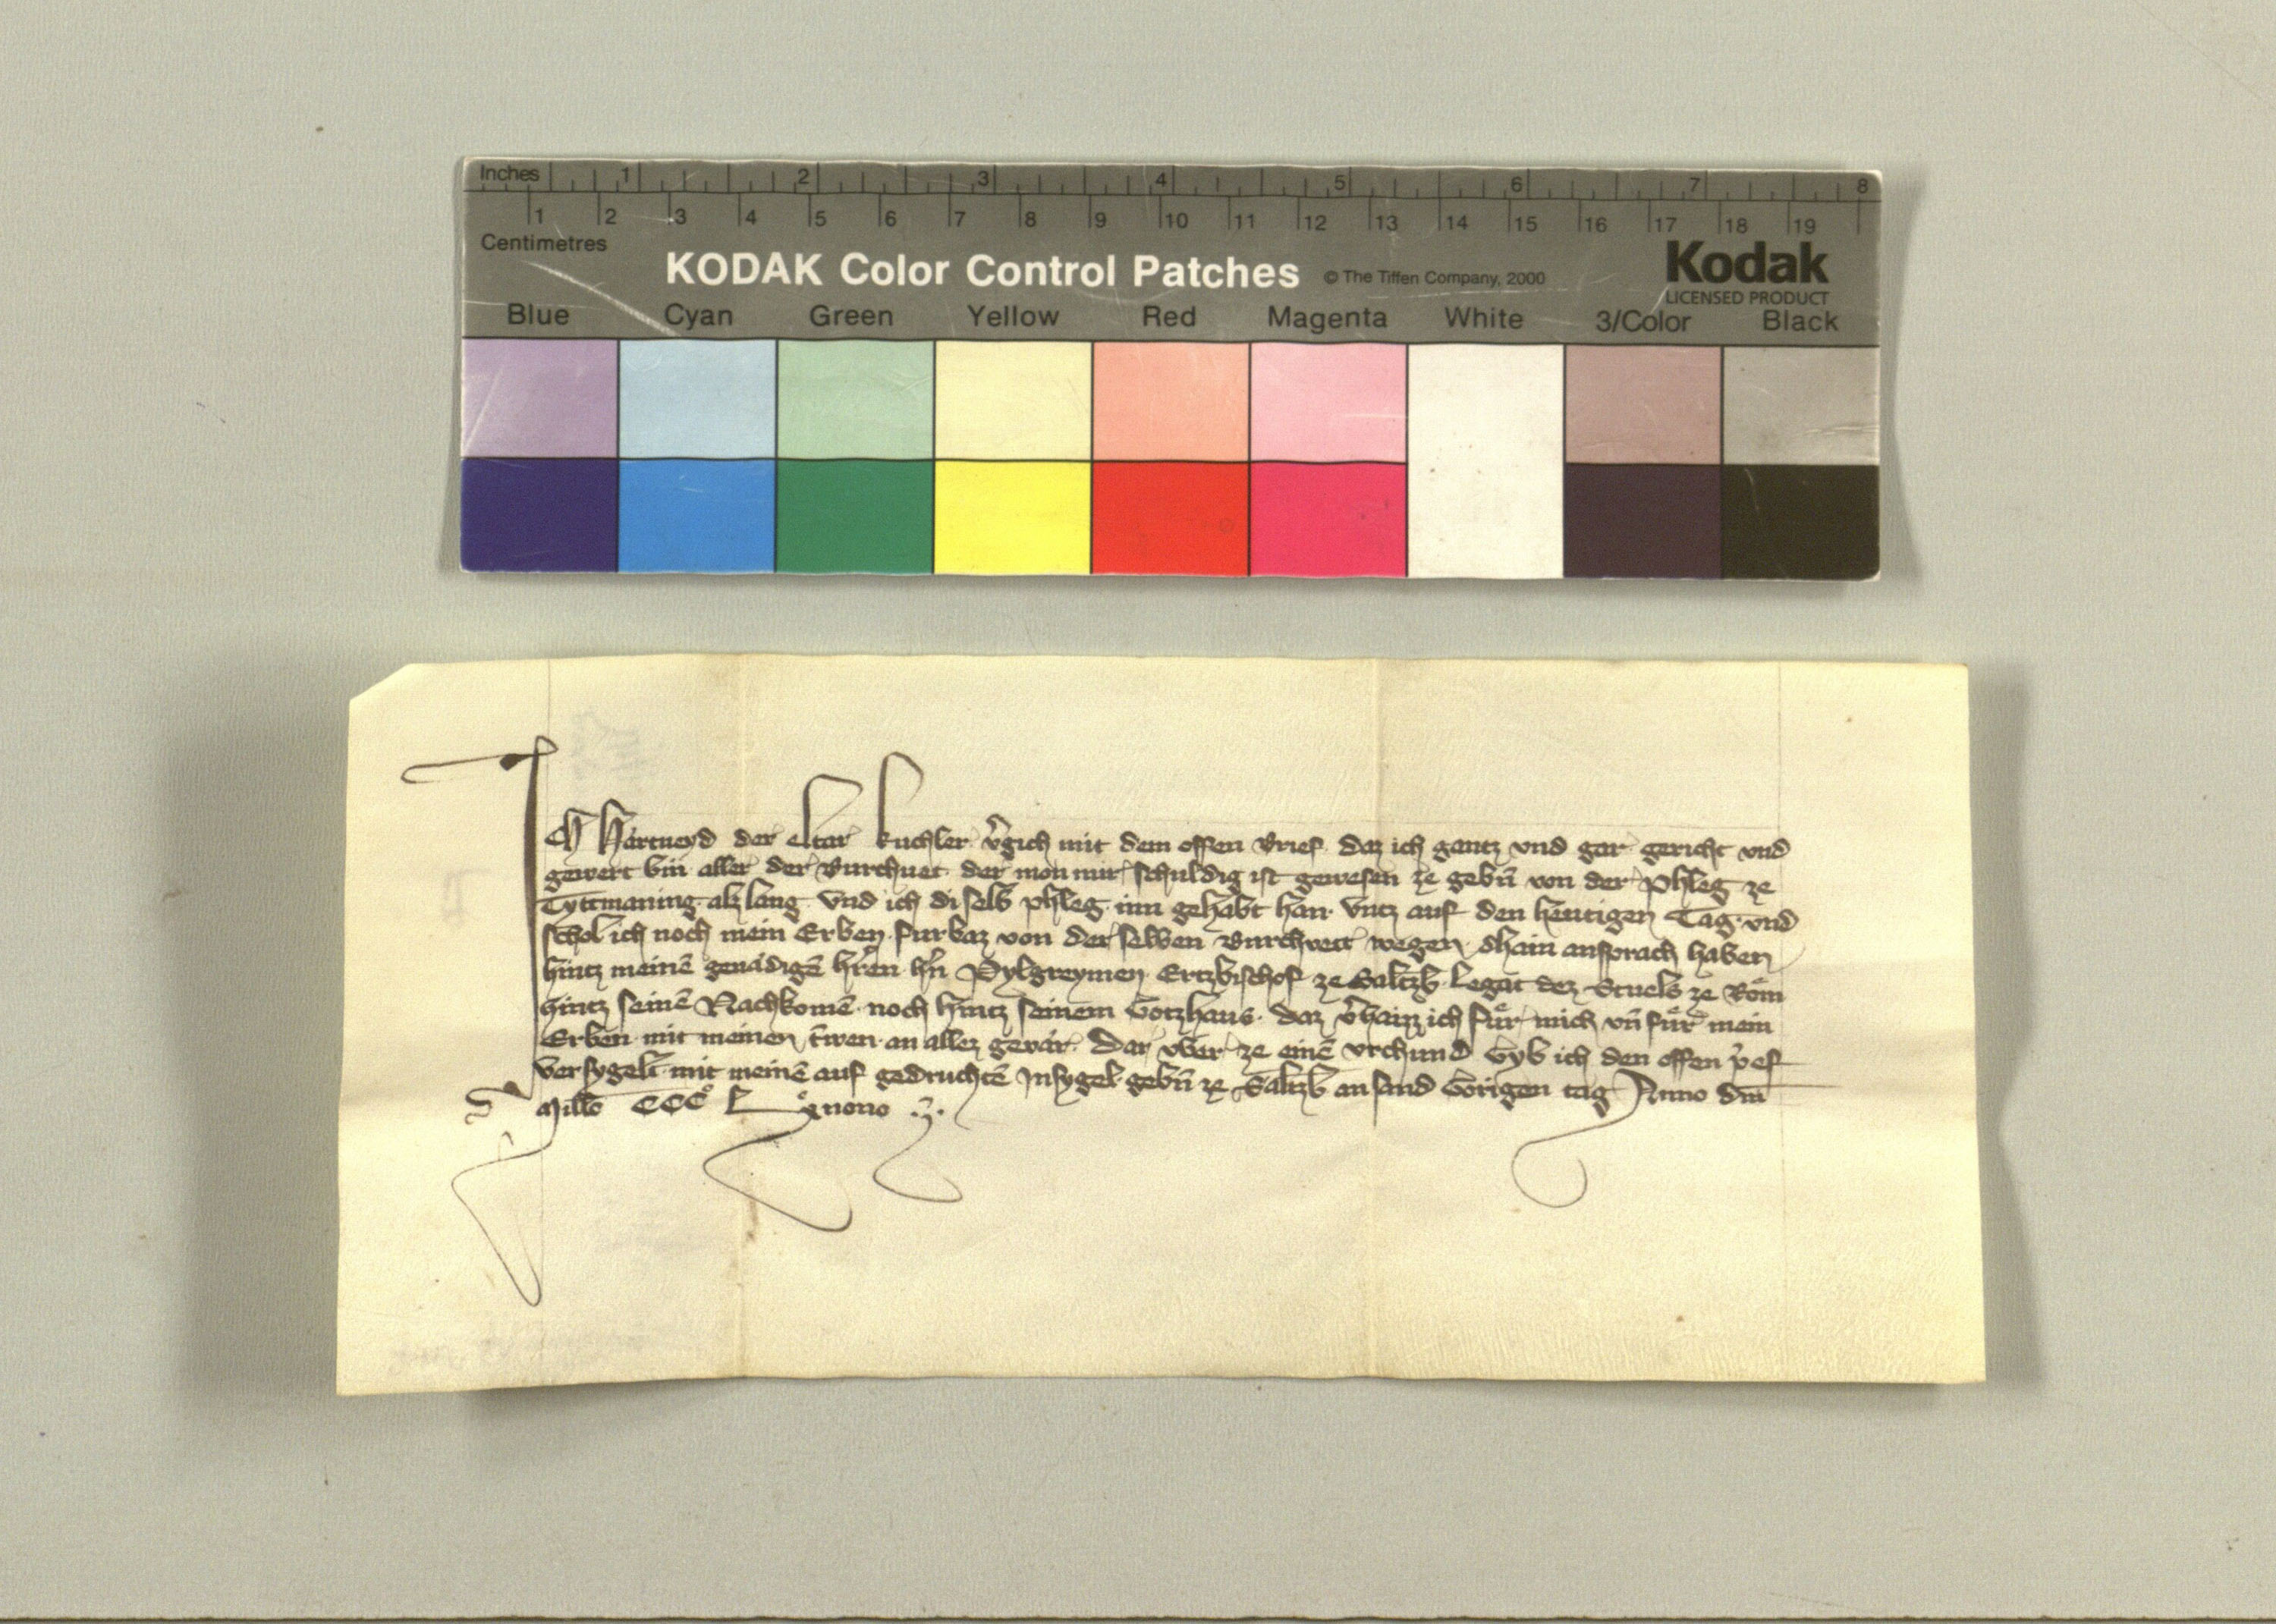 Inches 1 2 3 4 5 6 7 8
1 2 3 4 5 6 7 8 9 10 11 12 13 14 15 16 17 18 19
Centimetres
KODAK Color Control Patches © The Tiffen Company, 2000 Kodak
LICENSED PRODUCT
Blue Cyan Green Yellow Red Magenta White 3/Color Black
Ich Hartneyd der elter kuchler v̄gich mit dem offen brief daz ich gantz vnd gar gericht vnd
gewert bin aller der Burchuet der mon mir schuldig ist gewesen ze gebn̄ von der phleg ze
Tyttmaning alz lang vnd ich di selb phleg inn gehabt han vntz auf den heutigen Tag vnd
schol ich noch mein Erben furbaz von der selben Burchvett wegen dhain ansprach haben
hintz meinē genädigē hr̄en hn̄ Pylgreymen Ertzbischof ze Saltzb Legat dez Stuels ze Rom
hintz seinē Nachkomē noch hintz seinem Gotzhaus daz v̄haizz ich für mich vn̄ für mein
Erben mit meinen trwen an allez gevär Dar vber ze einē vrchund Gyb ich den offen pref
versygelt mit meinē auf gedruchtē Insygel gebn̄ ze Saltzb an sand Görigen tag Anno dm̄
Millō CCCͦ Lxͦ nono